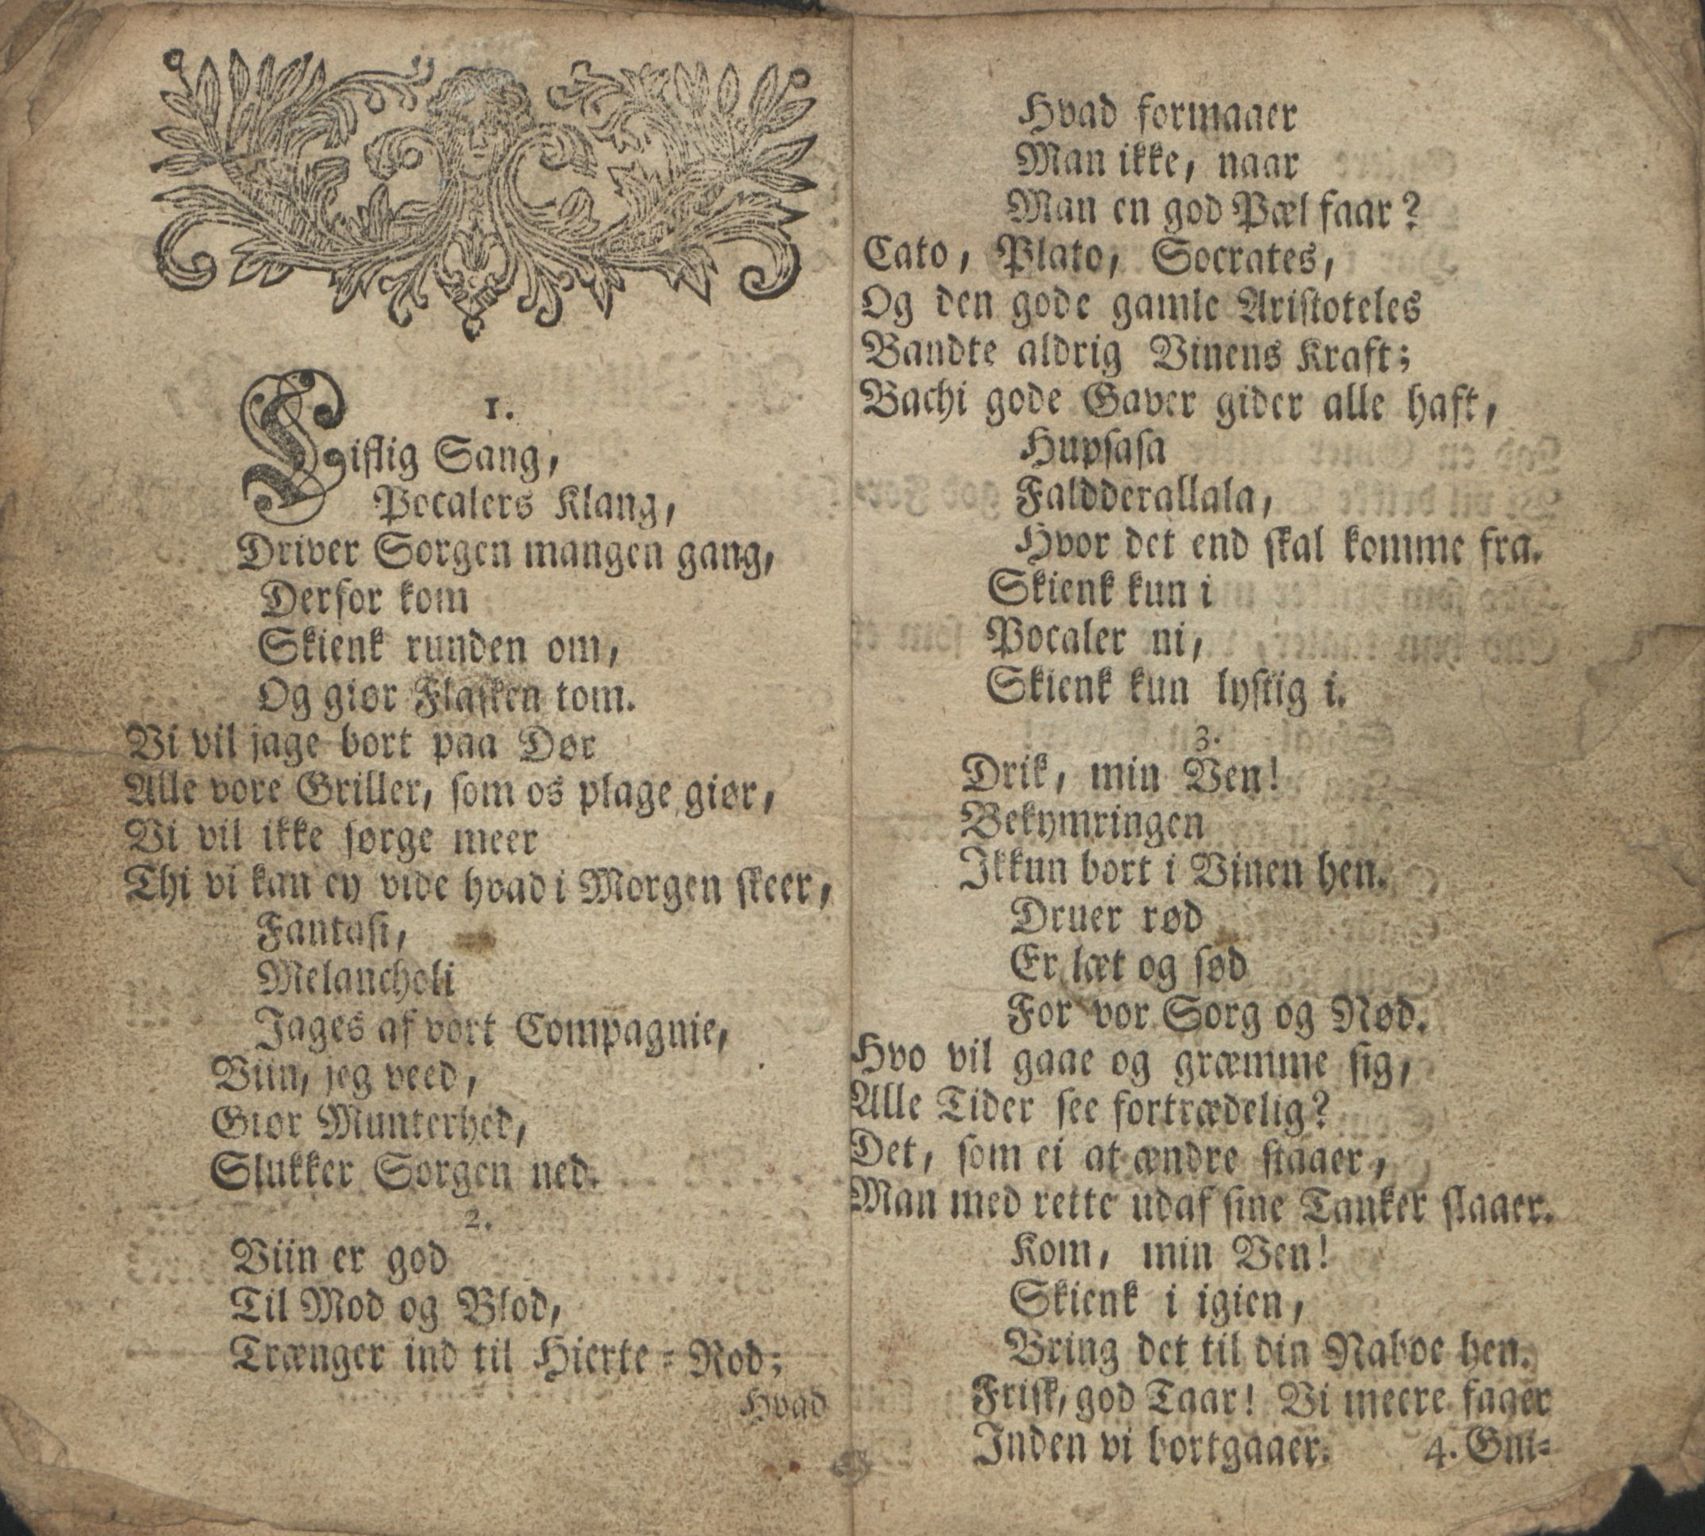 1.
Liflig Sang,
Pocalers Klang,
Driver Sorgen mangen gang,
Derfor kom
Skienk runden om,
Og giør Flasken tom.
Vi vil jage bort paa Dør
Alle vore Griller, som os plage giør,
Vi vil ikke sørge meer
Thi vi kan ey vide hvad i Morgen skeer,
Fantasi,
Melancholi
Jages af vort Compagnie,
Viin, jeg veed,
Giør Munterhed,
Slukker Sorgen ned.
2.
Viin er god
Til Mod og Blod,
Trænger ind til Hierte-Rod;
Hvad
Hvad formaaer
Man ikke, naar
Man en god Pæl faar?
Cato, Plato, Socrates,
Og den gode gamle Aristoteles
Bandte aldrig Vinens Kraft;
Bachi gode Gaver gider alle haft,
Hupsasa
Faldderallala,
Hvor det end skal komme fra.
Skienk kun i
Pocaler ni,
Skienk kun lystig i.
3.
Drik, min Ven!
Bekymringen
Ikkun bort i Vinen hen.
Druer rød
Er læt og sød
For vor Sorg og Nød.
Hvo vil gaae og græmme sig,
Alle Tider see fortrædelig?
Det, som ei at ændre staaer,
Man med rette udaf sine Tanker slaaer.
Kom, min Ven!
Skienk i igien,
Bring det til din Naboe hen.
Frisk, god Taar! Vi meere faaer
Inden vi bortgaaer. 4. Gni-